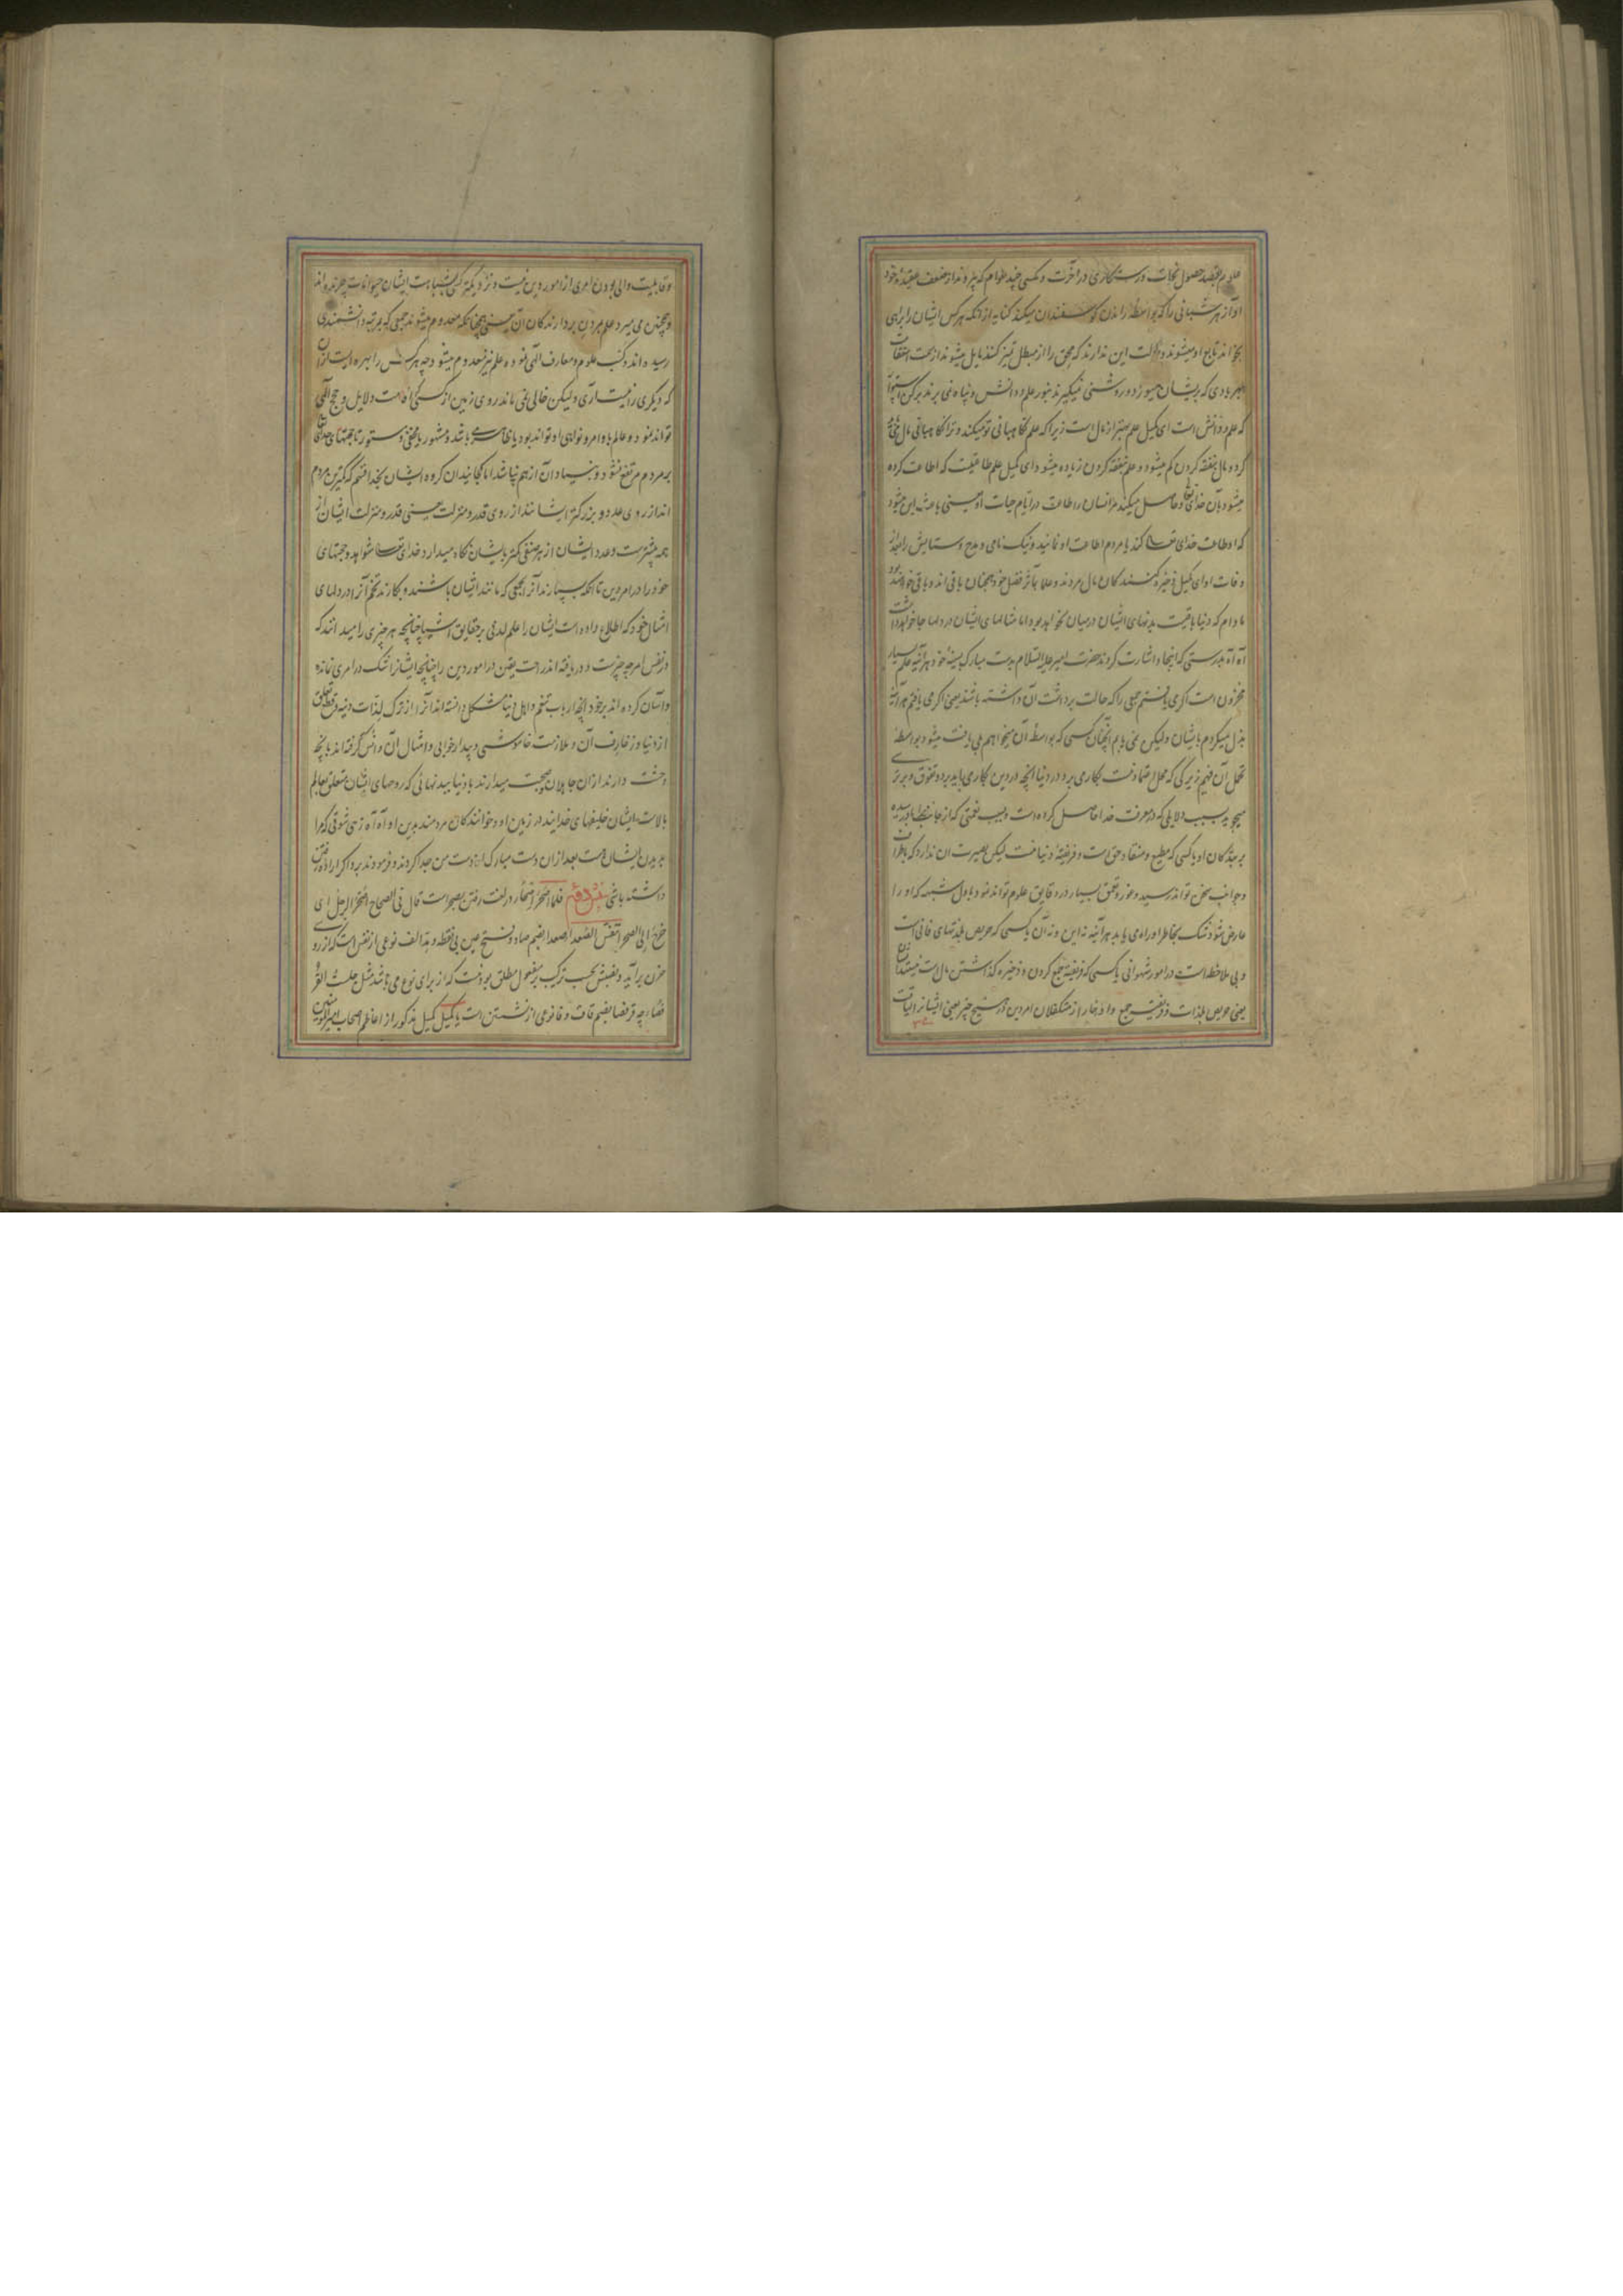 علوم بقصد حصول نجات و رستکاری در آخرت و مکسی چند عوام که پیروند از ضعف عقیده خود
آواز هر شبانی را که بواسطه راندن کوسفندان میکند کنایه از آنکه هر کس ایشان را براهی
بخواند تابع او میشوند و حالت این ندارند که محق را از مبطل تمیز کنند مایل میشوند از جهت اعتقاد
بهر بادی که بریشان میوزد و روشنی نمیکیرند بنور علم و دانش و پناه نمی برند برکن استوار
که علم و دانش است ای کمیل علم بهتر از مال است زیرا که علم نکاهبانی تو میکند و ترا نکاهبانی مال می باید
کرد و مال بنفقه کردن کم میشود و علم بنفقه کردن زیاده میشود ای کمیل علم طاعتیست که اطاعت کرده
میشود بآن خدایتعالی و حاصل میکند مر انسان را طاعت در ایام حیات او یعنی باعث این میشود
که او طاعت خدای تعالی کند یا مردم اطاعت او نمایند و نیک نامی و مدح و ستایش را بعد از
وفات او ای کمیل ذخیره کنندکان مال مردند و علما بآثر فضل خود همچنان باقی اند و باقی خواهند بود
مادام که دنیا باقیست بدنهای ایشان درمیان نخواهد بود اما مثالهای ایشان در دلها جا خواهد داشت
آه آه بدرستی که اینجا و اشارت کردند حضرت امیر علیه السلام بدست مبارک بسینه خود هر آینه علم بسیار
مخزون است اکر می یافتم جمعی را که حالت برداشت آن داشته باشند یعنی اکر می یافتم هر آینه
بذل میکردم بایشان و لیکن نمی یابم آنچنان کسی که بواسطه آن میخواهم بلی یافت میشود بواسطه
تحمل آن فهیم زیرکی که محل اعتماد نیست بکار می برد در دنیا آنچه در دین بکار می باید برد و تفوق و برتری
میجوید بسبب دلایلی که در معرفت خدا حاصل کرده است و بسبب نعمتی که از جانب خدا باو رسیده
بر بندکان او یا کسی که مطیع و منقاد حق است و فریفته دنیا نیست لیکن بصیرت آن ندارد که باطراف
و جوانب سخن تواند رسید و غور و تعمق بسیار در دقایق علوم تواند نمود باول شبهه که او را
عارض شود شک بخاطر او راه می یابد هر آینه نه این و نه آن یا کسی که حریص بلذتهای فانی است
و بی ملاحظه است در امور شهوانی یا کسی که فریفته جمع کردن و ذخیره کذاشتن مال است نیستند ایشان
یعنی حریص بلذات و فریفته جمع و ادخار از متکفلان امر دین در هیچ چیز یعنی ایشان را لیاقت
و قابلیت والی بودن امری از امور دین نیست و نزدیکترکسی بشباهت ایشان حیوانات چرنده اند
و همچنین می میرد علم بمردن بردارندکان آن یعنی همچنانکه معدوم میشوند جمعی که بمرتبه دانشمندی
رسیده اند و کسب علوم و معارف الهی نموده علم نیز معدوم میشود چه هر کس را بهره ایست از آن
که دیکری را نیست آری ولیکن خالی نمی ماند روی زمین از کسی که اقامت دلایل و حجج الهی
تواند نمود و عالم باوامر و نواهی او تواند بود یا ظاهر باشد و مشهور یا مخفی و مستور تا حجتهای خدای تعالی
بر مردم مرتفع نشود و بنیاد آن از هم نپاشد اما کجایند آن کروه ایشان بخدا قسم که کمترین مردم
اند از روی عدد و بزرکترایشانند از روی قدر و منزلت یعنی قدر و منزلت ایشان از
همه بیشترست و عدد ایشان از هر صنفی کمتر بایشان نکاه میدارد خدای تعالی شواهد و حجتهای
خود را در امر دین تا آنکه بسپارند آنرا بجمعی که مانند ایشان باشند و بکارند تخم آنرا در دلهای
امثال خود که اطلاع داده است ایشان را علم لدنی بر حقایق اشیا چنانچه هر چیزی را میدانند که
در نفس امر چه چیزست و دریافته اند راحت یقین در امور دین را چنانچه ایشانرا شک در امری نمانده
و آسان کرده اند بر خود آنچه ارباب تنعم و اهل دنیا مشکل دانسته اند آنرا از ترک لذات دنیه و قطع تعلق
از دنیا و زخارف آن و ملازمت خاموشی و بیدار خوابی و امثال آن و انس کرفته اند بآنچه
وحشت دارند از آن جاهلان و صحبت میدارند با دنیا ببدنهائی که روحهای ایشان متعلق بعالم
بالاست ایشان خلیفهای خدایند در زمین او و خوانندکان مردمند بدین او آه آه زهی شوقی که مرا
بدیدن ایشان هست بعد از آن دست مبارک از دست من جدا کردند و فرمودند برو اکر اراده رفتن
داشته باشی فلما اصحر اصحار در لغت رفتن بصحراست قال فی الصحاح اصحر الرجل ای
خرج إلی الصحراء تنفس الصعداء صعدا بضم صاد و فتح عین بی نقطه و بمد الف نوعی از نفس است که از روی
حزن برآید و نصبش بحسب ترکیب بر مفعول مطلق بودنست که از برای نوع می باشد مثل جلست القرفصا
چه قرفصا بضم قاف و فا نوعی از نشستن است یا کمیل کمیل مذکور از اعاظم اصحاب امیر المومنین